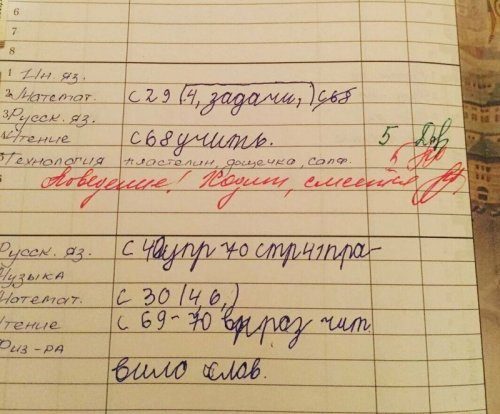 6
7
8
1 Ин. яз.
2 Математ. с 29 (4, задачи,) с68
3 Русск. яз.
Чтение с 68 учить. 5
Технология пластелин, дощечка, салф.
Поведение! Ходит, смеется
Русск. яз. с 40 упр 70 стр 41 пра-
Музыка
Математ. с 30 (4, 6,)
Чтение с 69-70 выраз чит.
Физ-ра
вило слов.